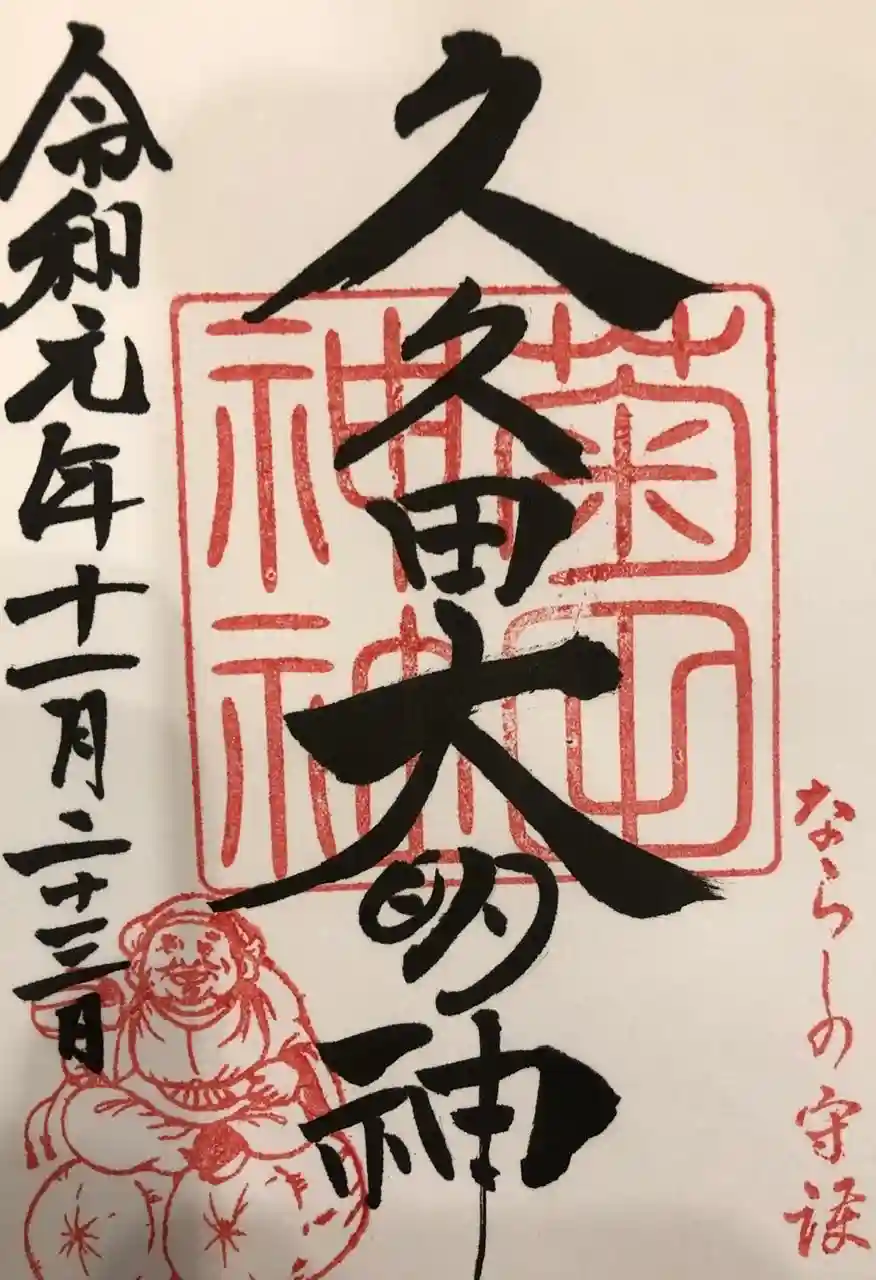 ならしの守護
久久田大明神
菊田
神社
令和元年十一月二十三日